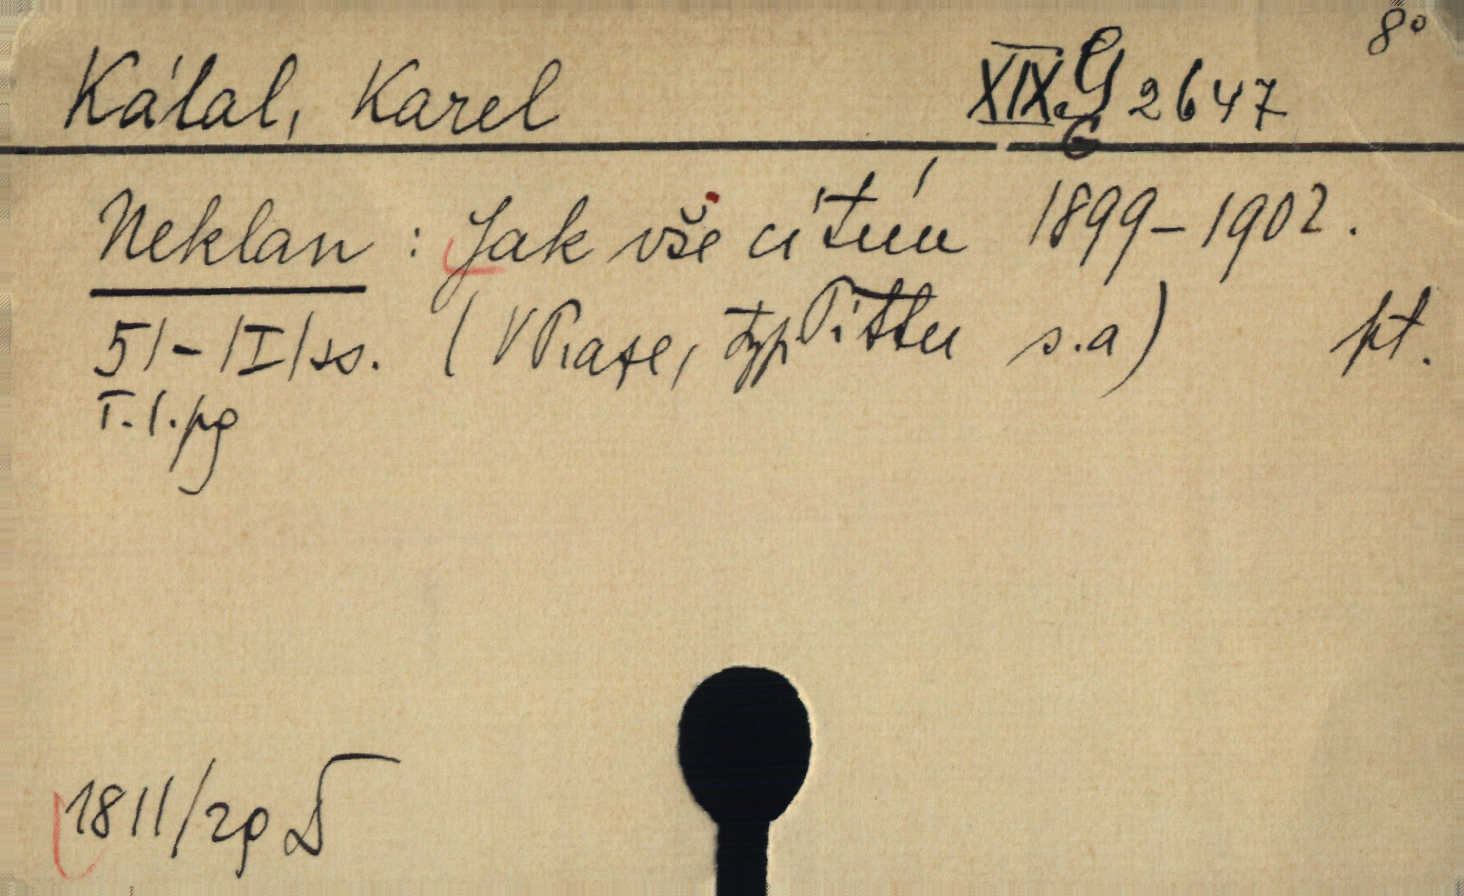 8°
Kálal, Karel XIX.G 2647
G
Neklan : Jak vše cítím 1899-1902.
51-|I|ss. (V Praze, typ Pitter s.a) pt.
T.l.pg
1811/